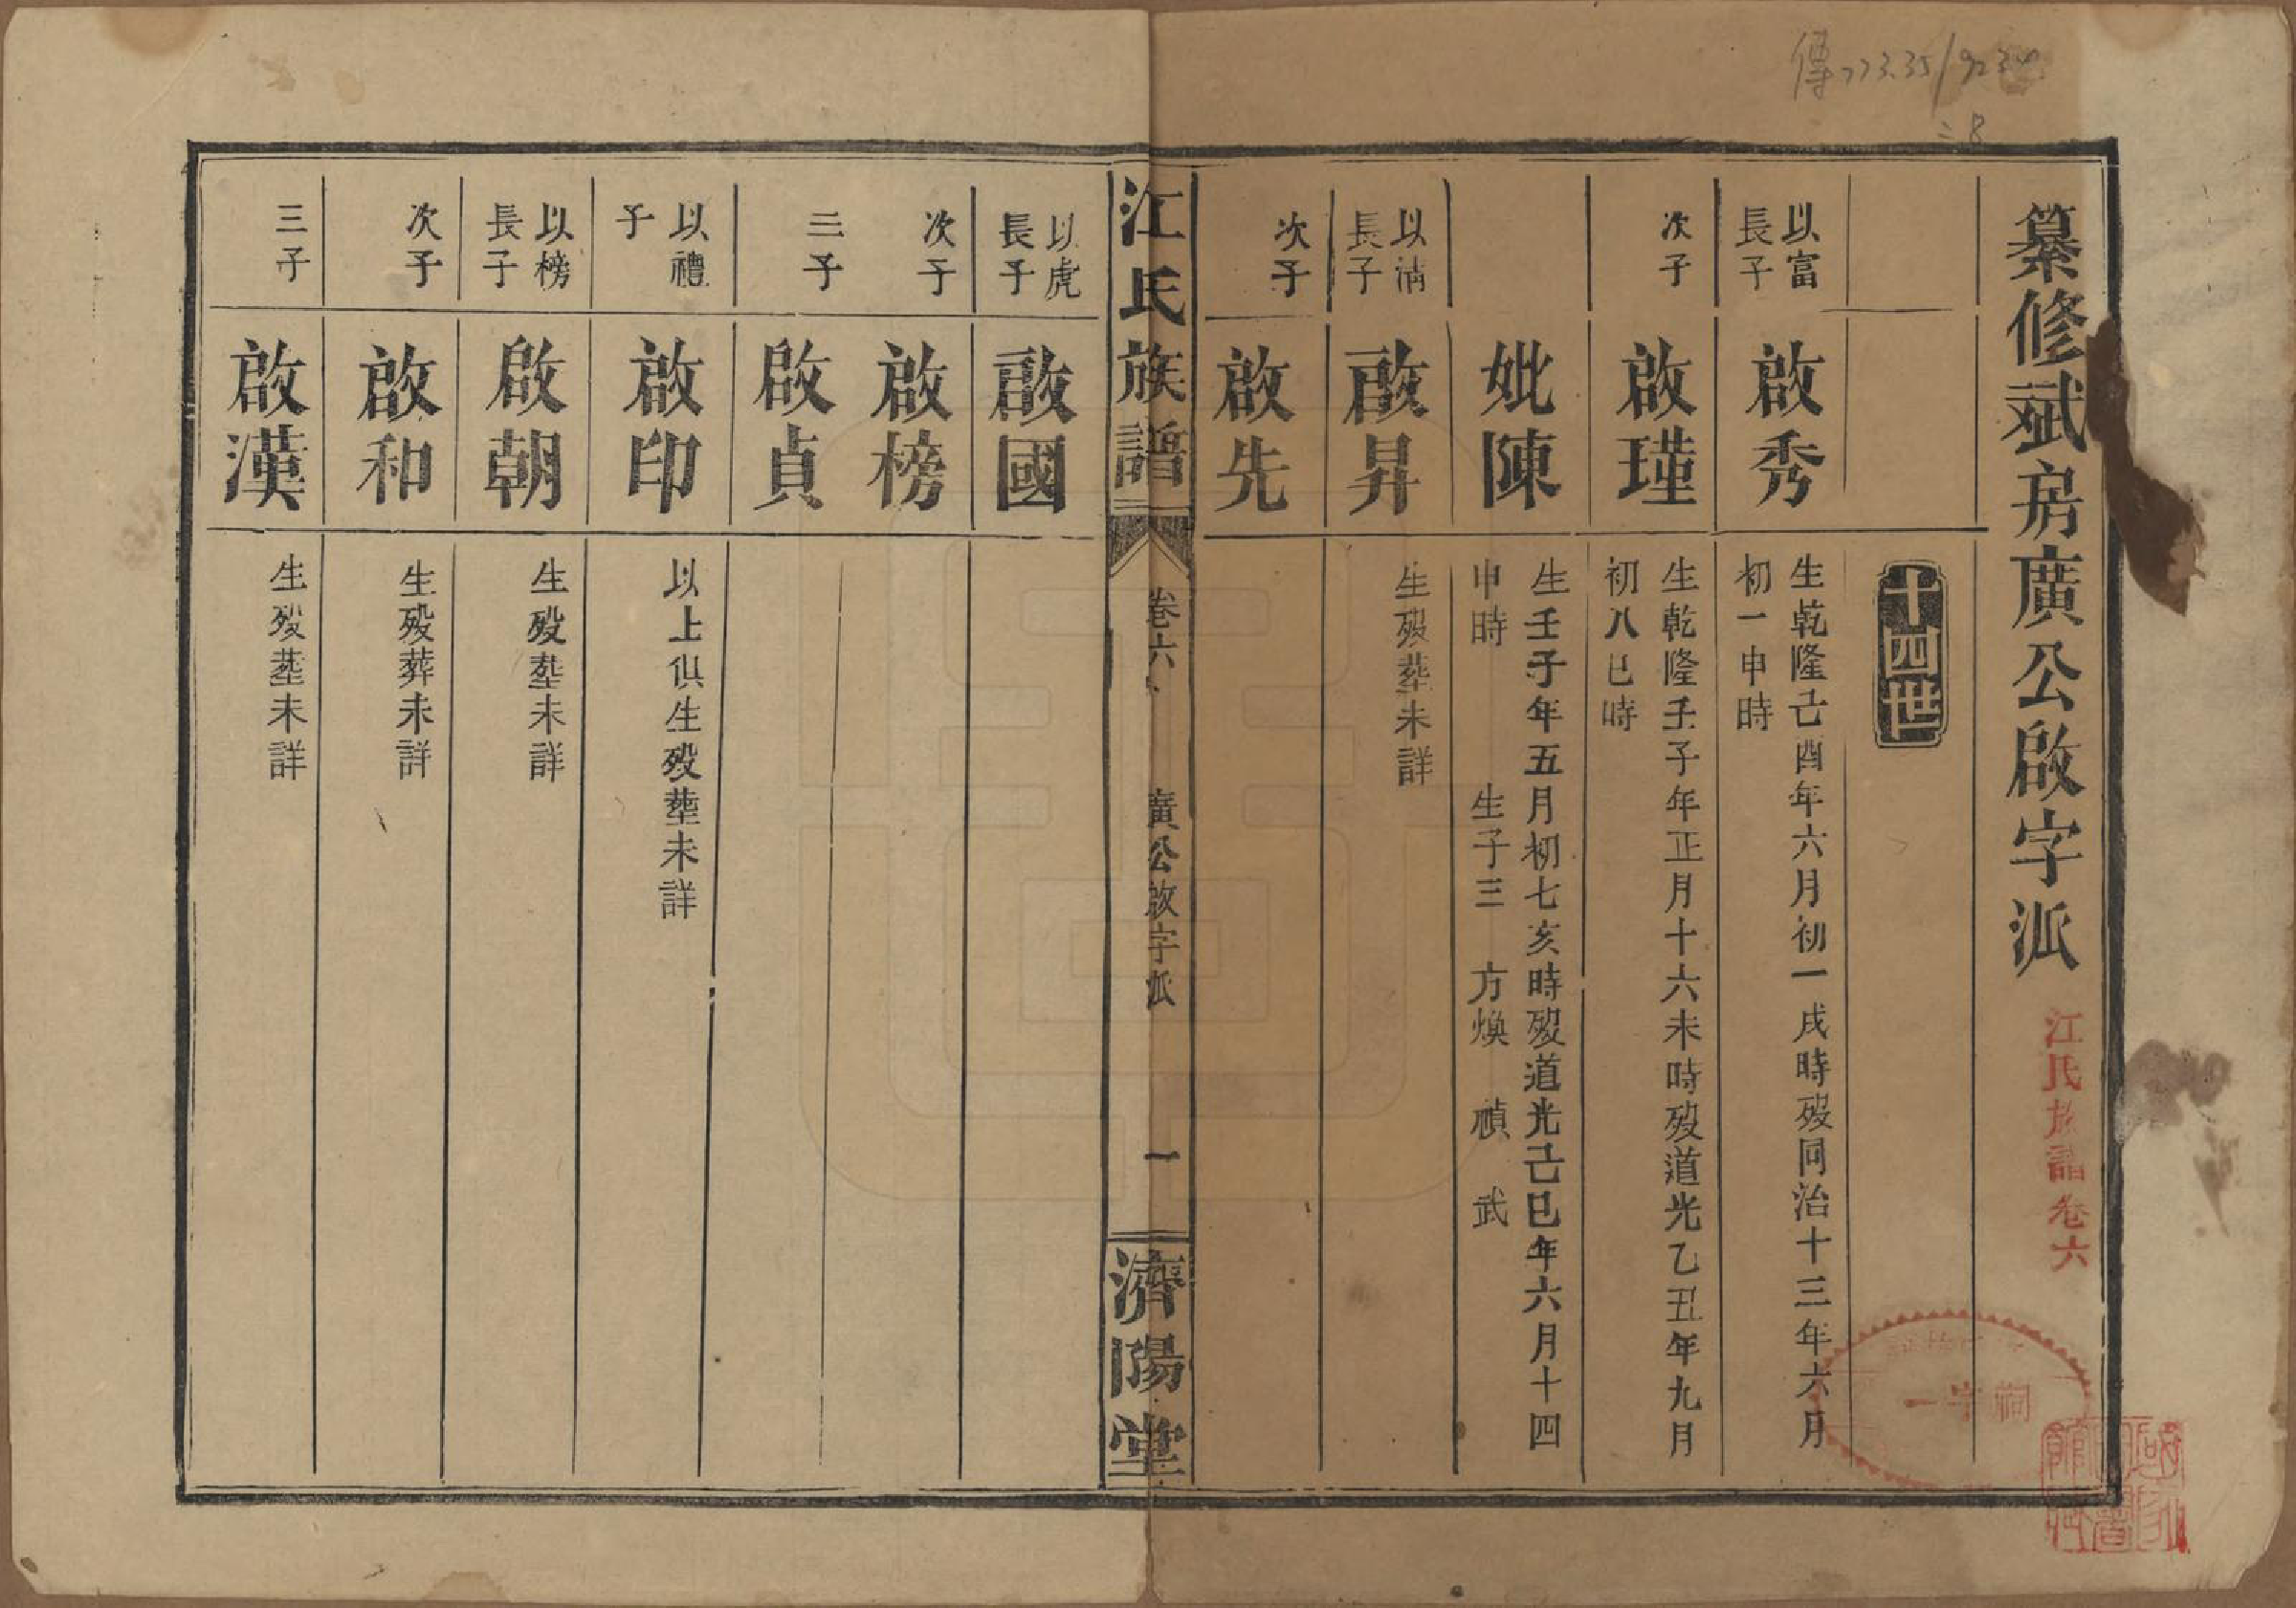 纂修斌房廣公啟字派
江氏族譜卷六
十四世
以富
長子
啟秀
生乾隆己酉年六月初一戌時歿同治十三年六月
初一申時
次子
啟瑾
生乾隆壬子年正月十六未時歿道光乙丑年九月
初八巳時
妣陳
生壬子年五月初七亥時歿道光己巳年六月十四
申時 生子三 方煥 禎 武
以清
長子
啟昇
生歿塟未詳
次子
啟先
江氏族譜
卷六
廣公啟字派
一
濟陽堂
以虎
長子
啟國
次子
啟榜
三子
啟貞
以禮
子
啟印
以上俱生歿塟未詳
以榜
長子
啟朝
生歿塟未詳
次子
啟和
生歿葬未詳
三子
啟漢
生歿塟未詳